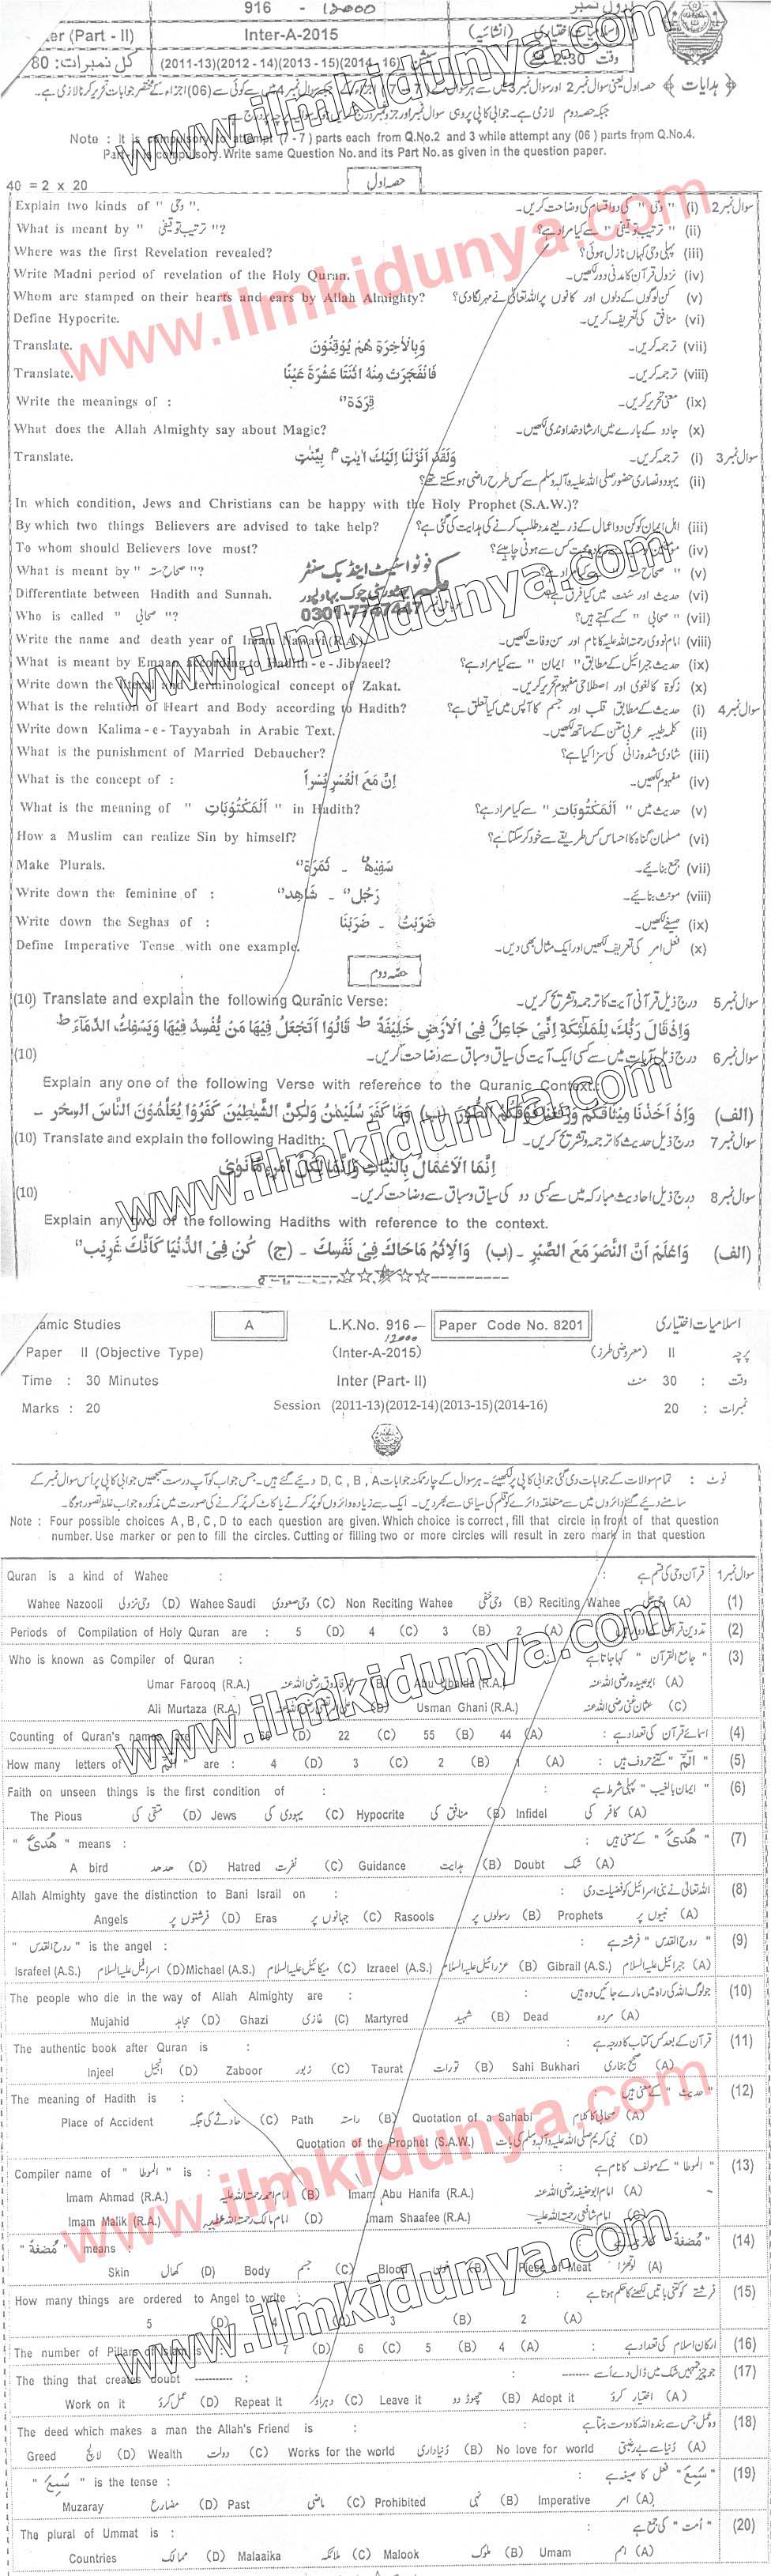 916 - 12000
رول نمبر
ter (Part - II) Inter-A-2015 اسلامیات اختیاری (انشائیہ)
کل نمبرات : 80 (2011-13)(2012-14)(2013-15)(2014-16) وقت 2:30
﴿ ہدایات ﴾
Note : It is compulsory to attempt (7 - 7) parts each from Q.No.2 and 3 while attempt any (06) parts from Q.No.4.
Part- compulsory. Write same Question No. and its Part No. as given in the question paper.
حصہ اول
40 = 2 x 20
Explain two kinds of " وحی ". سوال نمبر 2 (i) " وحی " کی دو اقسام کی وضاحت کریں۔
What is meant by " ترتیب توقیفی "? (ii) " ترتیب توقیفی " سے کیا مراد ہے؟
Where was the first Revelation revealed? (iii) پہلی وحی کہاں نازل ہوئی؟
Write Madni period of revelation of the Holy Quran. (iv) نزول قرآن کا مدنی دور لکھیں۔
Whom are stamped on their hearts and ears by Allah Almighty? (v) کن لوگوں کے دلوں اور کانوں پر اللہ تعالیٰ نے مہر لگا دی؟
Define Hypocrite. (vi) منافق کی تعریف کریں۔
Translate. وَبِالْاٰخِرَةِ هُمْ يُوْقِنُوْنَ (vii) ترجمہ کریں۔
Translate. فَانْفَجَرَتْ مِنْهُ اثْنَتَا عَشْرَةَ عَيْنًا (viii) ترجمہ کریں۔
Write the meanings of : قِرَدَةً (ix) معنی تحریر کریں۔
What does the Allah Almighty say about Magic? (x) جادو کے بارے میں ارشاد خداوندی لکھیں۔
Translate. وَلَقَدْ اَنْزَلْنَا اِلَيْكَ اٰيٰتٍ بَيِّنٰتٍ سوال نمبر 3 (i) ترجمہ کریں۔
(ii) یہود و نصاریٰ حضور صلی اللہ علیہ وآلہ وسلم سے کس طرح راضی ہو سکتے تھے؟
In which condition, Jews and Christians can be happy with the Holy Prophet (S.A.W.)?
By which two things Believers are advised to take help? (iii) اہل ایمان کو کن دو اعمال کے ذریعے مدد طلب کرنے کی ہدایت کی گئی ہے؟
To whom should Believers love most? (iv) سے ہونی چاہیئے؟
What is meant by " صحاح ستہ "? (v) " صحاح ستہ
فوٹو اسٹیٹ اینڈ بک سنٹر
Differentiate between Hadith and Sunnah. (vi) حدیث اور سنت میں کیا فرق ہے؟
چوک بہاولپور
0301-7747447
Who is called " صحابی "? (vii) " صحابی " کسے کہتے ہیں؟
Write the name and death year of Imam Nawavi (R.A.) (viii) امام نووی رحمتہ اللہ علیہ کا نام اور سن وفات لکھیں۔
What is meant by Emaan according to Hadith - e - Jibraeel? (ix) حدیث جبرائیل کے مطابق " ایمان " سے کیا مراد ہے؟
Write down the literal and terminological concept of Zakat. (x) زکوۃ کا لغوی اور اصطلاحی مفہوم تحریر کریں۔
What is the relation of Heart and Body according to Hadith? سوال نمبر 4 (i) حدیث کے مطابق قلب اور جسم کا آپس میں کیا تعلق ہے؟
Write down Kalima - e - Tayyabah in Arabic Text. (ii) کلمہ طیبہ عربی متن کے ساتھ لکھیں۔
What is the punishment of Married Debaucher? (iii) شادی شدہ زانی کی سزا کیا ہے؟
What is the concept of : اِنَّ مَعَ الْعُسْرِ يُسْرًا (iv) مفہوم لکھیں۔
What is the meaning of " اَلْمَكْتُوْبَاتِ " in Hadith? (v) حدیث میں " اَلْمَكْتُوْبَاتِ " سے کیا مراد ہے؟
How a Muslim can realize Sin by himself? (vi) مسلمان گناہ کا احساس کس طریقے سے خود کر سکتا ہے؟
Make Plurals. سَفِيْهٌ - ثَمَرَةٌ (vii) جمع بنائیے۔
Write down the feminine of : رَجُلٌ - شَاهِدٌ (viii) مونث بنائیے۔
Write down the Seghas of : ضَرَبْتُ - ضَرَبْنَا (ix) صیغے لکھیں۔
Define Imperative Tense with one example. (x) فعل امر کی تعریف لکھیں اور ایک مثال بھی دیں۔
حصہ دوم
(10) Translate and explain the following Quranic Verse: سوال نمبر 5 درج ذیل قرآنی آیت کا ترجمہ و تشریح کریں۔
وَاِذْ قَالَ رَبُّكَ لِلْمَلٰٓئِكَةِ اِنِّىْ جَاعِلٌ فِى الْاَرْضِ خَلِيْفَةً ط قَالُوْٓا اَتَجْعَلُ فِيْهَا مَنْ يُّفْسِدُ فِيْهَا وَيَسْفِكُ الدِّمَآءَ ط
(10) سوال نمبر 6 درج ذیل آیات میں سے کسی ایک آیت کی سیاق و سباق سے وضاحت کریں۔
Explain any one of the following Verse with reference to the Quranic Context.:
(الف) وَاِذْ اَخَذْنَا مِيْثَاقَكُمْ وَرَفَعْنَا فَوْقَكُمُ الطُّوْرَ (ب) وَمَا كَفَرَ سُلَيْمٰنُ وَلٰكِنَّ الشَّيٰطِيْنَ كَفَرُوْا يُعَلِّمُوْنَ النَّاسَ السِّحْرَ -
(10) Translate and explain the following Hadith: سوال نمبر 7 درج ذیل حدیث کا ترجمہ و تشریح کریں۔
اِنَّمَا الْاَعْمَالُ بِالنِّيَّاتِ وَاِنَّمَا لِكُلِّ امْرِءٍ مَّانَوٰى
(10) سوال نمبر 8 درج ذیل احادیث مبارکہ میں سے کسی دو کی سیاق و سباق سے وضاحت کریں۔
Explain any two of the following Hadiths with reference to the context.
(الف) وَاعْلَمْ اَنَّ النَّصْرَ مَعَ الصَّبْرِ - (ب) وَالْاِثْمُ مَاحَاكَ فِىْ نَفْسِكَ - (ج) كُنْ فِى الدُّنْيَا كَاَنَّكَ غَرِيْبٌ
----------☆☆☆☆☆----------
amic Studies A L.K.No. 916 - 12000 Paper Code No. 8201 اسلامیات اختیاری
Paper II (Objective Type) (Inter-A-2015) پرچہ II (معروضی طرز)
Time : 30 Minutes Inter (Part- II) وقت : 30 منٹ
Marks : 20 Session (2011-13)(2012-14)(2013-15)(2014-16) نمبرات : 20
نوٹ : تمام سوالات کے جوابات دی گئی جوابی کاپی پر لکھیئے۔ ہر سوال کے چار ممکنہ جوابات D, C, B, A دیئے گئے ہیں۔ جس جواب کو آپ درست سمجھیں جوابی کاپی پر اُس سوال نمبر کے
سامنے دیئے گئے دائروں میں سے متعلقہ دائرے کو قلم کی سیاہی سے بھر دیں۔ ایک سے زیادہ دائروں کو پُر کرنے یا کاٹ کر پُر کرنے کی صورت میں مذکورہ جواب غلط تصور ہوگا۔
Note : Four possible choices A, B, C, D to each question are given. Which choice is correct, fill that circle in front of that question
number. Use marker or pen to fill the circles. Cutting or filling two or more circles will result in zero mark in that question
Quran is a kind of Wahee : سوال نمبر 1 قرآن وحی کی قسم ہے :
Wahee Nazooli وحی نزولی (D) Wahee Saudi وحی صعودی (C) Non Reciting Wahee وحی خفی (B) Reciting Wahee (A) (1)
Periods of Compilation of Holy Quran are : 5 (D) 4 (C) 3 (B) 2 (A) (2)
Who is known as Compiler of Quran : " جامع القرآن " کہا جاتا ہے : (3)
Umar Farooq (R.A.) (B) Abu Ubaida (R.A.) ابو عبیدہ رضی اللہ عنہ (A)
Ali Murtaza (R.A.) (D) Usman Ghani (R.A.) عثمان غنی رضی اللہ عنہ (C)
Counting of Quran's names are : 66 (D) 22 (C) 55 (B) 44 (A) اسمائے قرآن کی تعداد ہے : (4)
How many letters of " الٓمّٓ " are : 4 (D) 3 (C) 2 (B) 1 (A) " الٓمّٓ " کتنے حروف ہیں : (5)
Faith on unseen things is the first condition of : " ایمان بالغیب " پہلی شرط ہے : (6)
The Pious متقی کی (D) Jews یہودی کی (C) Hypocrite منافق کی (B) Infidel کافر کی (A)
" هُدًى " means : " هُدًى " کے معنی ہیں : (7)
A bird ھدھد (D) Hatred نفرت (C) Guidance ہدایت (B) Doubt شک (A)
Allah Almighty gave the distinction to Bani Israil on : اللہ تعالیٰ نے بنی اسرائیل کو فضیلت دی : (8)
Angels فرشتوں پر (D) Eras جہانوں پر (C) Rasools رسولوں پر (B) Prophets نبیوں پر (A)
" روح القدس " is the angel : " روح القدس " فرشتہ ہے : (9)
Israfeel (A.S.) اسرافیل علیہ السلام (D) Michael (A.S.) میکائیل علیہ السلام (C) Izraeel (A.S.) عزرائیل علیہ السلام (B) Gibrail (A.S.) جبرائیل علیہ السلام (A)
The people who die in the way of Allah Almighty are : جو لوگ اللہ کی راہ میں مارے جائیں وہ ہیں : (10)
Mujahid مجاہد (D) Ghazi غازی (C) Martyred شہید (B) Dead مردہ (A)
The authentic book after Quran is : قرآن کے بعد کس کتاب کا درجہ ہے : (11)
Injeel انجیل (D) Zaboor زبور (C) Taurat تورات (B) Sahi Bukhari صحیح بخاری (A)
The meaning of Hadith is : " حدیث " کے معنی ہیں : (12)
Place of Accident حادثے کی جگہ (C) Path راستہ (B) Quotation of a Sahabi صحابی کا کلام (A)
Quotation of the Prophet (S.A.W.) نبی کریم صلی اللہ علیہ وآلہ وسلم کی بات (D)
Compiler name of " الموطا " is : " الموطا " کے مولف کا نام ہے : (13)
Imam Ahmad (R.A.) امام احمد رحمتہ اللہ علیہ (B) Imam Abu Hanifa (R.A.) امام ابو حنیفہ رضی اللہ عنہ (A)
Imam Malik (R.A.) امام مالک رحمتہ اللہ علیہ (D) Imam Shaafee (R.A.) امام شافعی رحمتہ اللہ علیہ (C)
" مُضْغَةً " means : " مُضْغَةً (14)
Skin کھال (D) Body جسم (C) Blood خون (B) Piece of Meat لوتھڑا (A)
How many things are ordered to Angel to write : فرشتے کو کتنی باتیں لکھنے کا حکم ہوتا ہے : (15)
5 (D) 4 (C) 3 (B) 2 (A)
The number of Pillars of Islam is : 7 (D) 6 (C) 5 (B) 4 (A) ارکان اسلام کی تعداد ہے : (16)
The thing that creates doubt ---------- : جو چیز تمہیں شک میں ڈال دے اُسے ------- : (17)
Work on it عمل کرو (D) Repeat it دہراؤ (C) Leave it چھوڑ دو (B) Adopt it اختیار کرو (A)
The deed which makes a man the Allah's Friend is : وہ عمل جس سے بندہ اللہ کا دوست بنتا ہے : (18)
Greed لالچ (D) Wealth دولت (C) Works for the world دُنیاداری (B) No love for world دُنیا سے بے رغبتی (A)
" سَمِعَ " is the tense : " سَمِعَ " فعل کا صیغہ ہے : (19)
Muzaray مضارع (D) Past ماضی (C) Prohibited نہی (B) Imperative امر (A)
The plural of Ummat is : " اُمت " کی جمع ہے : (20)
Countries ممالک (D) Malaaika ملائکہ (C) Malook ملوک (B) Umam امم (A)
www.ilmkidunya.com
www.ilmkidunya.com
www.ilmkidunya.com
www.ilmkidunya.com
www.ilmkidunya.com
www.ilmkidunya.com
www.ilmkidunya.com